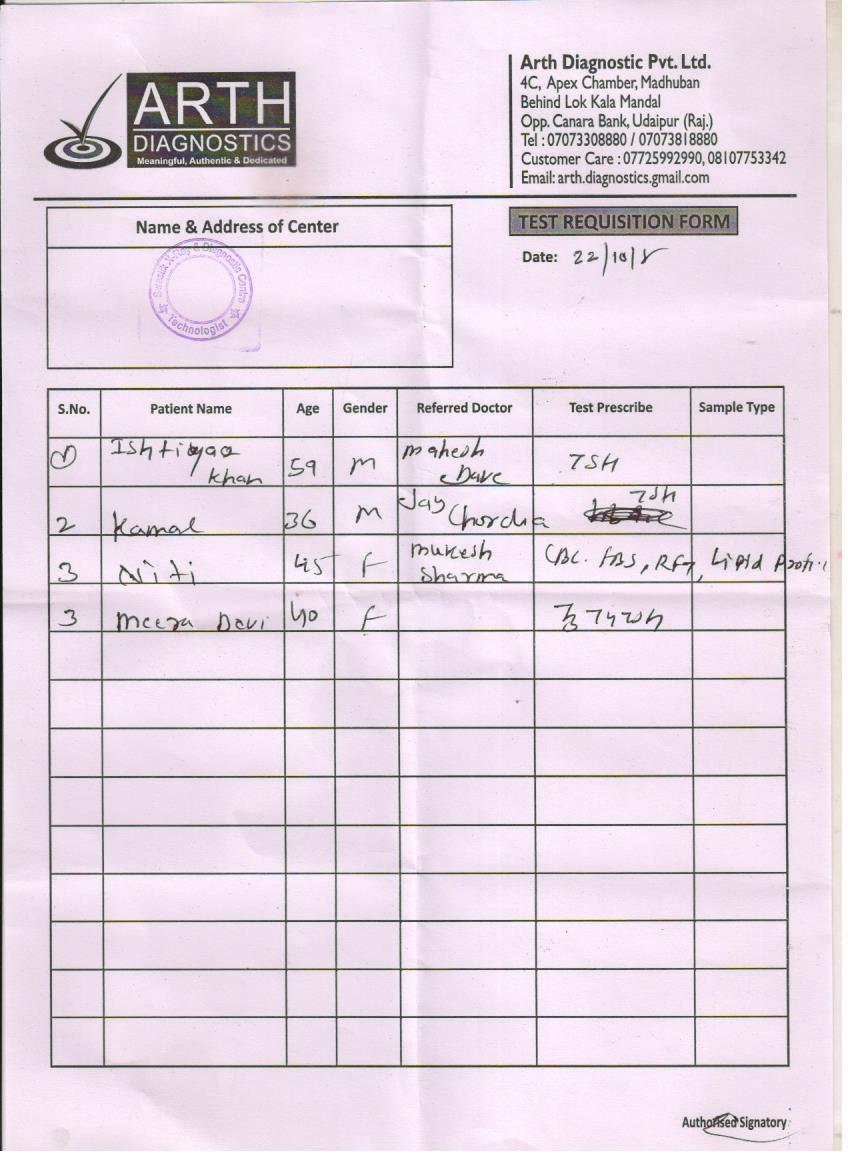 ARTH
DIAGNOSTICS
Meaningful, Authentic & Dedicated
Arth Diagnostic Pvt. Ltd.
4C, Apex Chamber, Madhuban
Behind Lok Kala Mandal
Opp. Canara Bank, Udaipur (Raj.)
Tel : 07073308880 / 07073818880
Customer Care : 07725992990, 08107753342
Email: arth.diagnostics.gmail.com
Name & Address of Center
X-Ray & Diagnostic Centre
Technologist
TEST REQUISITION FORM
Date: 22/10/
S.No. Patient Name Age Gender Referred Doctor Test Prescribe Sample Type
1 Ishtiyaq Khan 59 M Mahesh Dave TSH
2 Kamal 36 M Jay Chordia TSH
3 Niti 45 F Mukesh Sharma CBC. FBS, RFT, Lipid Profi
3 Meera Devi 40 F
Authorised Signatory